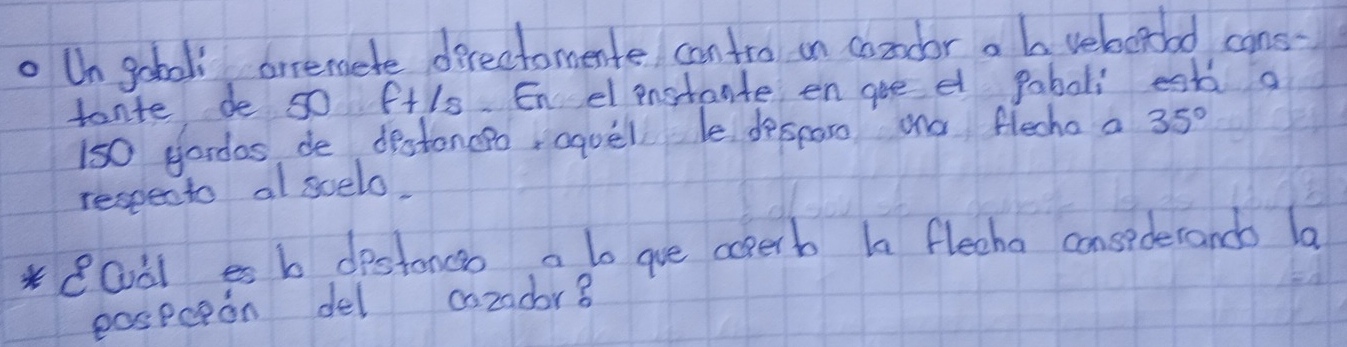 o Un gabali arremete directamente, contra un cazador a la velocidad cons-
tante, de 50 ft/s. En el instante en que el pabali está a
150 yardas de distancia, aquél le dispara una flecha a 35°
respecto al suelo.
* ¿Cuál es la distancia a la que acierta la flecha considerando la
posición del cazador?